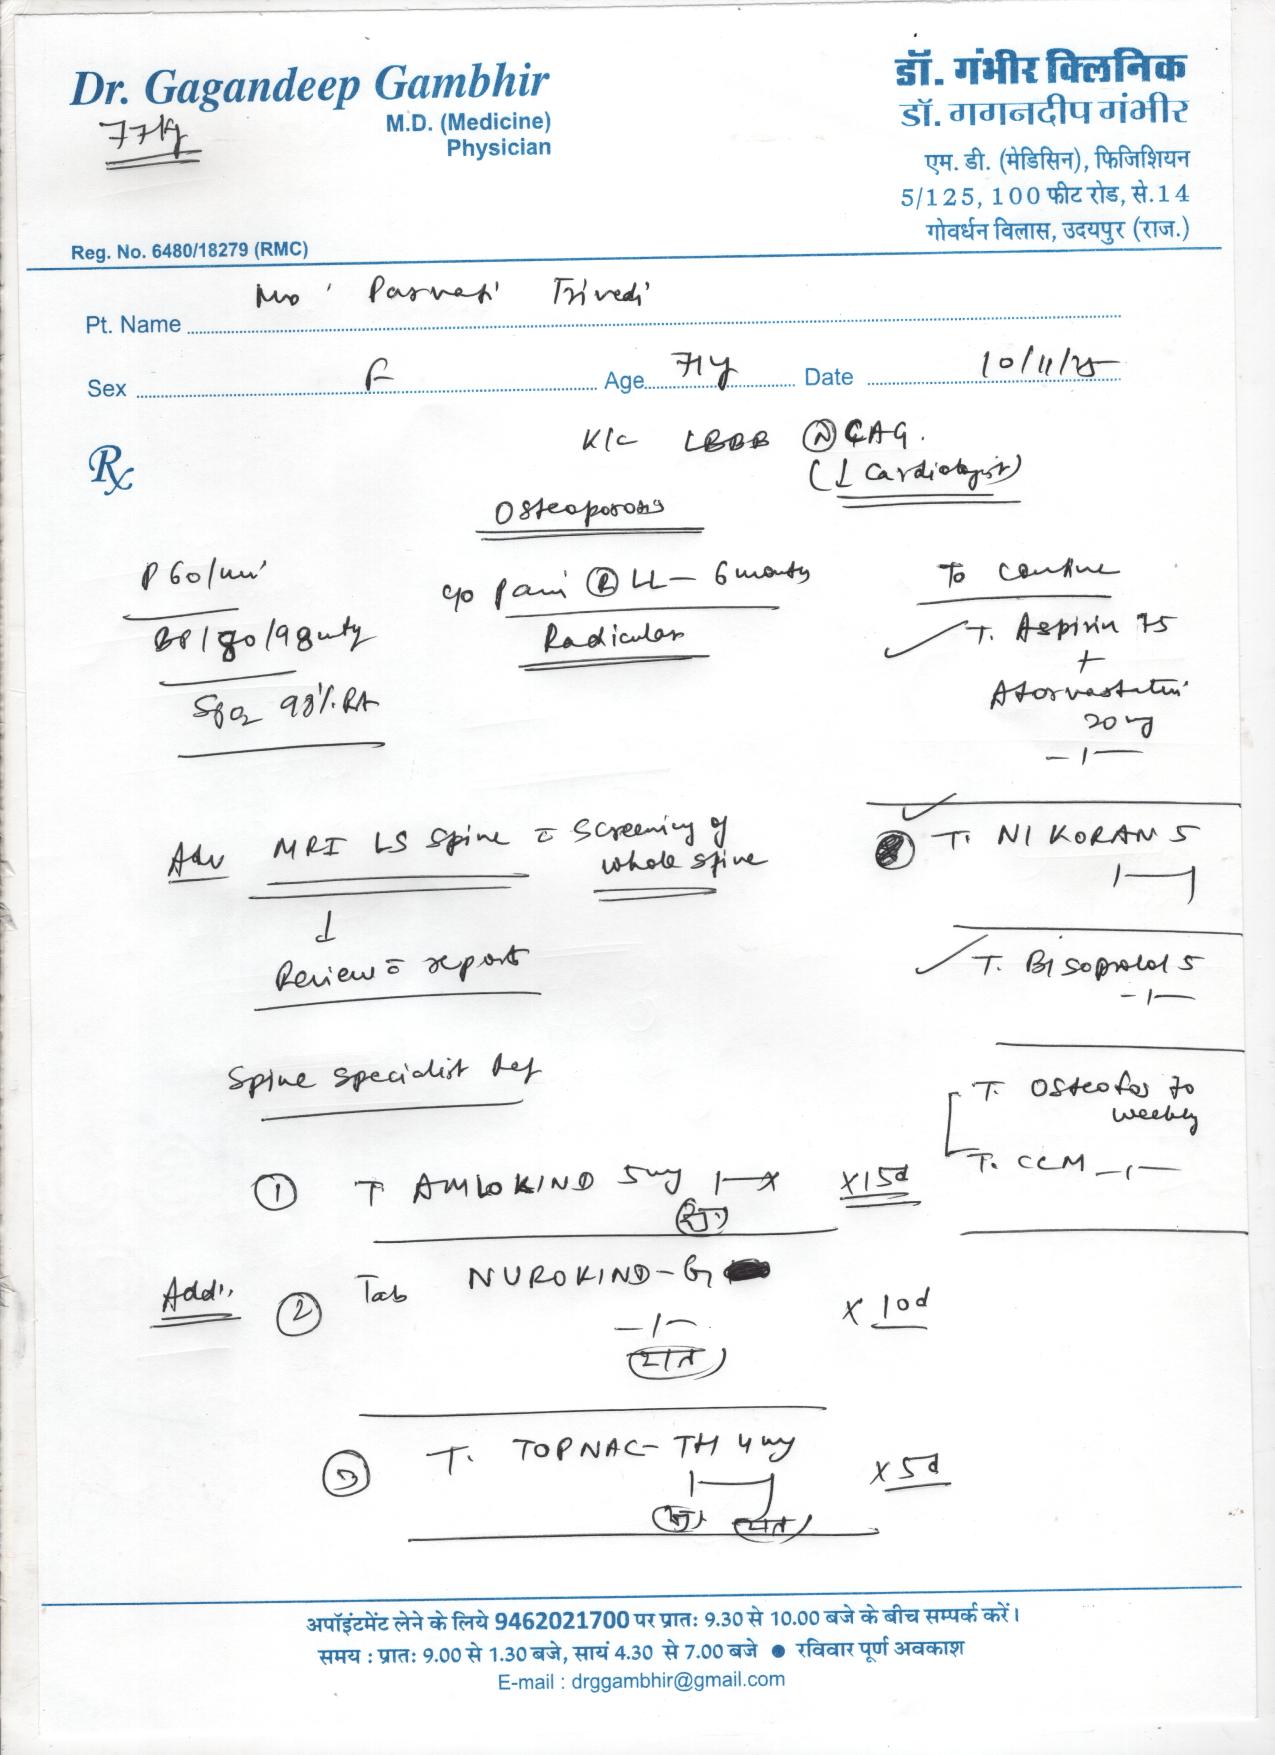 Dr. Gagandeep Gambhir
M.D. (Medicine)
Physician
77kg
Reg. No. 6480/18279 (RMC)
डॉ. गंभीर क्लिनिक
डॉ. गगनदीप गंभीर
एम. डी. (मेडिसिन), फिजिशियन
5/125, 100 फीट रोड, से.14
गोवर्धन विलास, उदयपुर (राज.)
Pt. Name Parvati Trivedi
Sex F Age 71y Date 10/11/25
Rx
K/C LBBB Ⓝ CAG.
(↓ Cardiologist)
Osteoporosis
P 60/min
BP 180/98 mmHg
SpO2 98% RA
c/o pain Ⓡ LL - 6 months
Radicular
To continue
T. Aspirin 75
+
Atorvastatin
20mg
-1-
T. NIKORAN 5
T. Bisoprolol 5
-1-
T. Osteofos 70
weekly
T. CCM -1-
Adv MRI LS Spine c̄ Screening of
whole spine
↓
Review c̄ report
Spine specialist Ref
① T AMLOKIND 5mg 1-x x 15d
Add:
② Tab NUROKIND-G x 10d
-1-
(रात)
③ T. TOPNAC-TH 4mg x 5d
रात
अपॉइंटमेंट लेने के लिये 9462021700 पर प्रातः 9.30 से 10.00 बजे के बीच सम्पर्क करें।
समय : प्रातः 9.00 से 1.30 बजे, सायं 4.30 से 7.00 बजे ● रविवार पूर्ण अवकाश
E-mail : drggambhir@gmail.com